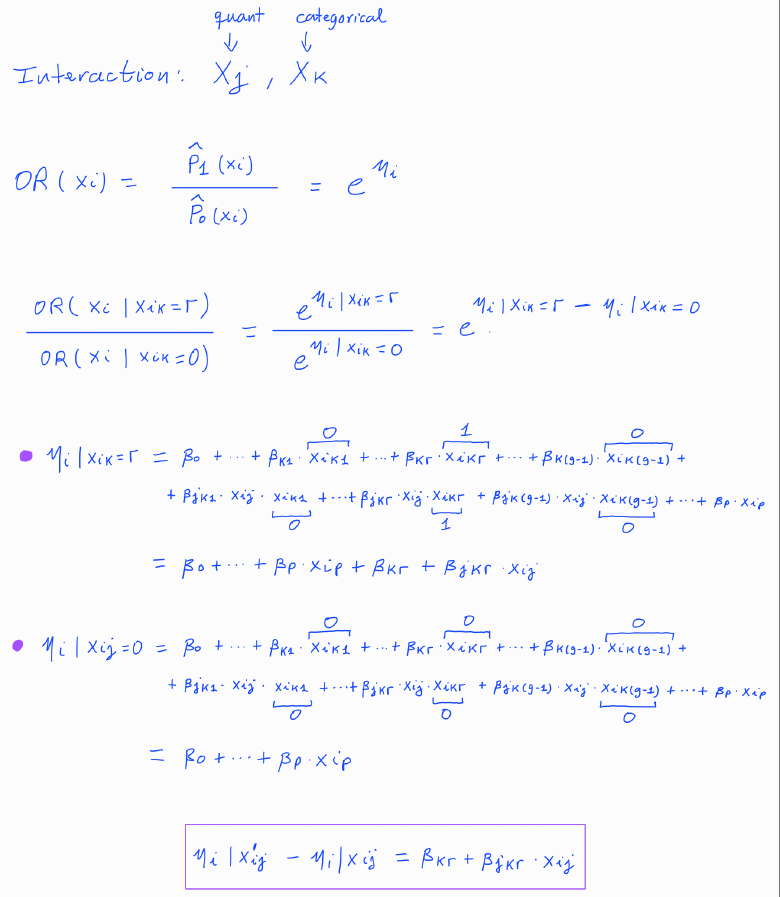 quant categorical
↓ ↓
Interaction: Xj , Xk
OR(xi) = p̂1(xi) / p̂0(xi) = e^ηi
OR(xi | xik=r) / OR(xi | xik=0) = e^(ηi | xik=r) / e^(ηi | xik=0) = e^(ηi | xik=r − ηi | xik=0)
0 1 0
• ηi | xik=r = β0 + ··· + βk1 · xik1 + ··· + βkr · xikr + ··· + βk(g-1) · xik(g-1) +
+ βjk1 · xij · xik1 + ··· + βjkr · xij · xikr + βjk(g-1) · xij · xik(g-1) + ··· + βp · xip
0 1 0
= β0 + ··· + βp · xip + βkr + βjkr · xij
0 0 0
• ηi | xij=0 = β0 + ··· + βk1 · xik1 + ··· + βkr · xikr + ··· + βk(g-1) · xik(g-1) +
+ βjk1 · xij · xik1 + ··· + βjkr · xij · xikr + βjk(g-1) · xij · xik(g-1) + ··· + βp · xip
0 0 0
= β0 + ··· + βp · xip
ηi | x'ij − ηi | xij = βkr + βjkr · xij